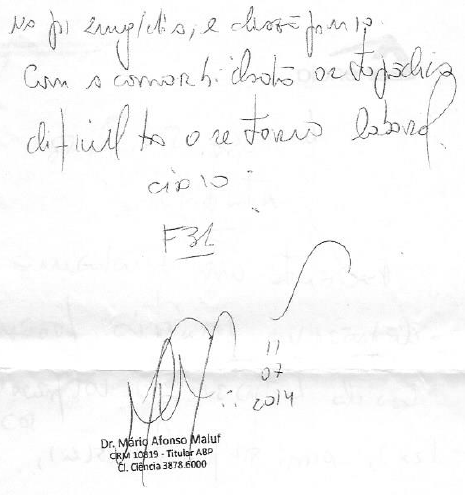 Com a comorbidade ortopédica
dificulta o retorno laboral.
CID 10:
F31
11
07
2014
Dr. Mário Afonso Maluf
CRM 10819 - Titular ABP
Cl. Ciência 3878.6000